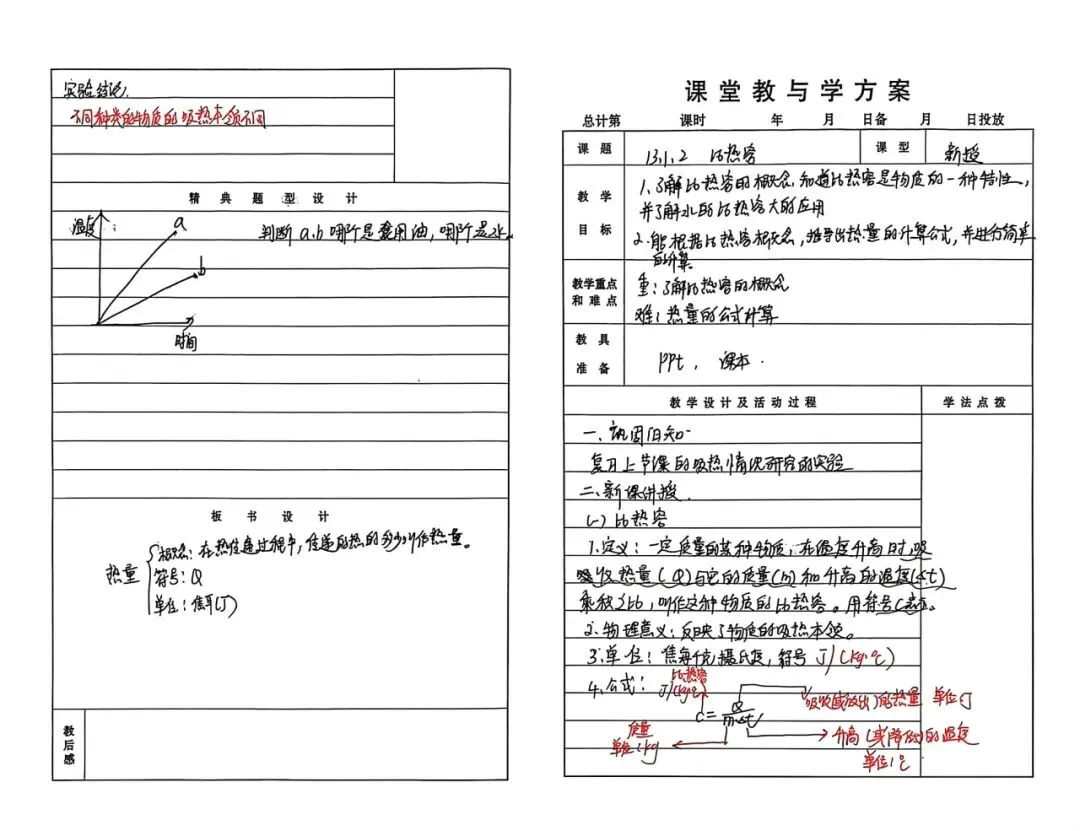 实验结论:
不同种类的物质的吸热本领不同
精典题型设计
温度
a
b
时间
判断a.b哪阶是食用油,哪阶是水.
板书设计
热量
概念:在热传递过程中,传递的热的多少叫作热量。
符号:Q
单位:焦耳(J)
教后感
课堂教与学方案
总计第 课时 年 月 日备 月 日投放
课题 13.1.2 比热容 课型 新授
教学目标
1.了解比热容的概念,知道比热容是物质的一种特性,
并了解水的比热容大的应用
2.能根据比热容概念,推导出热量的计算公式,并进行简单
的计算.
教学重点和难点
重:了解比热容的概念
难:热量的公式计算
教具准备
PPt. 课本.
教学设计及活动过程 学法点拨
一.巩固旧知
复习上节课的吸热情况研究的实验
二.新课讲授.
(一)比热容
1.定义:一定质量的某种物质,在温度升高时,吸
收热量(Q)与它的质量(m)和升高的温度(Δt)
乘积之比,叫作这种物质的比热容。用符号C表示。
2.物理意义:反映了物质的吸热本领。
3.单位:焦每千克摄氏度,符号 J/(kg·℃)
4.公式:
比热容
J/(kg·℃)
C=Q/mΔt
吸收(或放出)的热量 单位:J
质量
单位:kg
升高(或降低)的温度
单位:℃